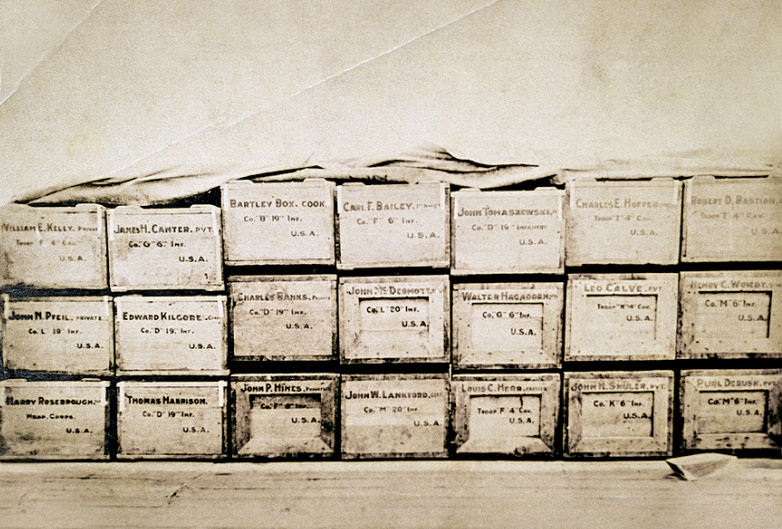 WILLIAM E. KELLY, PRIVATE
TROOP F 4" CAV.
U.S.A.
JAMES H. CANTER, PVT.
Co. "G" 6" INF.
U.S.A.
BARTLEY BOX, COOK
Co. "B" 19" INF.
U.S.A.
CARL F. BAILEY,
Co. "F" 6" INF.
U.S.A.
JOHN TOMASZEWSKI,
Co. "D" 19" INFANTRY
U.S.A.
CHARLES E. HOFFER,
TROOP "I" 4" CAV.
U.S.A.
ROBERT D. BASTIAN
TROOP "I" 4" CAV.
U.S.A.
JOHN N. PFEIL, PRIVATE
Co. L 19" INF.
U.S.A.
EDWARD KILGORE,
Co. "D" 19" INF.
U.S.A.
CHARLES BANKS,
Co. "D" 19" INF.
U.S.A.
JOHN McDERMOTT,
Co. L 20" INF.
U.S.A.
WALTER HAGADORN,
Co. "G" 6" INF.
U.S.A.
LEO CALVE, PVT.
TROOP "K" 4" CAV.
U.S.A.
HENRY C.
Co. "M" 6" INF.
U.S.A.
HARRY ROSEBROUGH,
HOSP. CORPS.
U.S.A.
THOMAS HARRISON,
Co. "D" 19" INF.
U.S.A.
JOHN P. HINES,
U.S.A.
JOHN W. LANKFORD,
Co. "M" 20" INF.
U.S.A.
LOUIS C. HERB,
TROOP F 4" CAV.
U.S.A.
JOHN H. SHULER, PVT.
Co. "K" 6" INF.
U.S.A.
PURL DEBUSK, PVT.
Co. "M" 6" INF.
U.S.A.